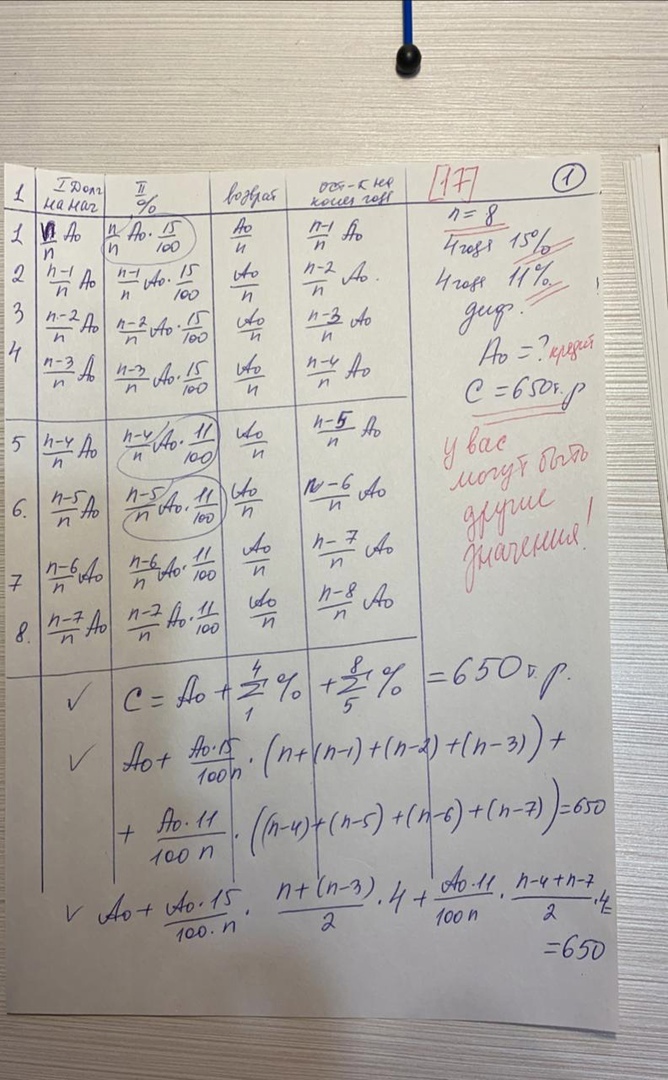 1 | I Долг на нач | II % | возврат | ост-к на конец года
1 | n/n A₀ | n/n A₀ · 15/100 | A₀/n | n-1/n A₀
2 | n-1/n A₀ | n-1/n A₀ · 15/100 | A₀/n | n-2/n A₀.
3 | n-2/n A₀ | n-2/n A₀ · 15/100 | A₀/n | n-3/n A₀
4 | n-3/n A₀ | n-3/n A₀ · 15/100 | A₀/n | n-4/n A₀
5 | n-4/n A₀ | n-4/n A₀ · 11/100 | A₀/n | n-5/n A₀
6. | n-5/n A₀ | n-5/n A₀ · 11/100 | A₀/n | n-6/n A₀
7 | n-6/n A₀ | n-6/n A₀ · 11/100 | A₀/n | n-7/n A₀
8. | n-7/n A₀ | n-7/n A₀ · 11/100 | A₀/n | n-8/n A₀
[17] 1
n = 8
4 года 15%
4 года 11%
диф.
A₀ = ? кредит
C = 650 т.р
у вас
могут быть
другие
значения!
✓ C = A₀ + 4Σ1 % + 8Σ5 % = 650 т.р.
✓ A₀ + A₀·15/100n · (n+(n-1)+(n-2)+(n-3)) +
+ A₀·11/100n · ((n-4)+(n-5)+(n-6)+(n-7)) = 650
✓ A₀ + A₀·15/100·n · n+(n-3)/2 · 4 + A₀·11/100n · n-4+n-7/2 · 4 =
= 650